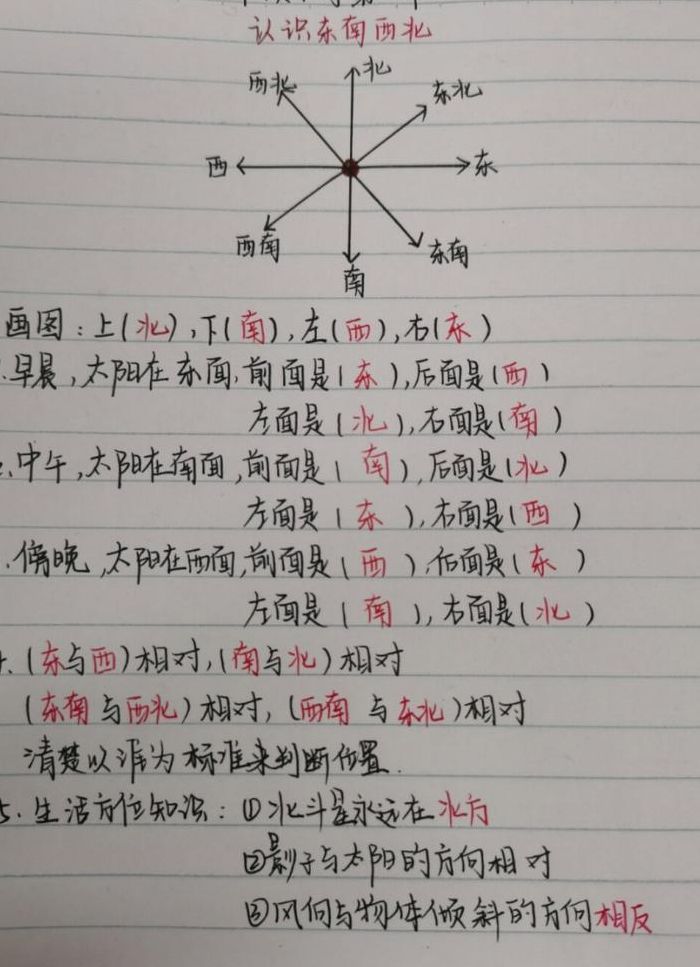 认识东南西北
北
西北
东北
西
东
西南
东南
南
画图：上(北),下(南),左(西),右(东)
.早晨,太阳在东面,前面是(东),后面是(西)
左面是(北),右面是(南)
、中午,太阳在南面,前面是(南),后面是(北)
左面是(东),右面是(西)
.傍晚,太阳在西面,前面是(西),后面是(东)
左面是(南),右面是(北)
.(东与西)相对,(南与北)相对
(东南与西北)相对,(西南与东北)相对
清楚以谁为标准来判断位置.
5.生活方位知识：①北斗星永远在北方
②影子与太阳的方向相对
③风向与物体倾斜的方向相反